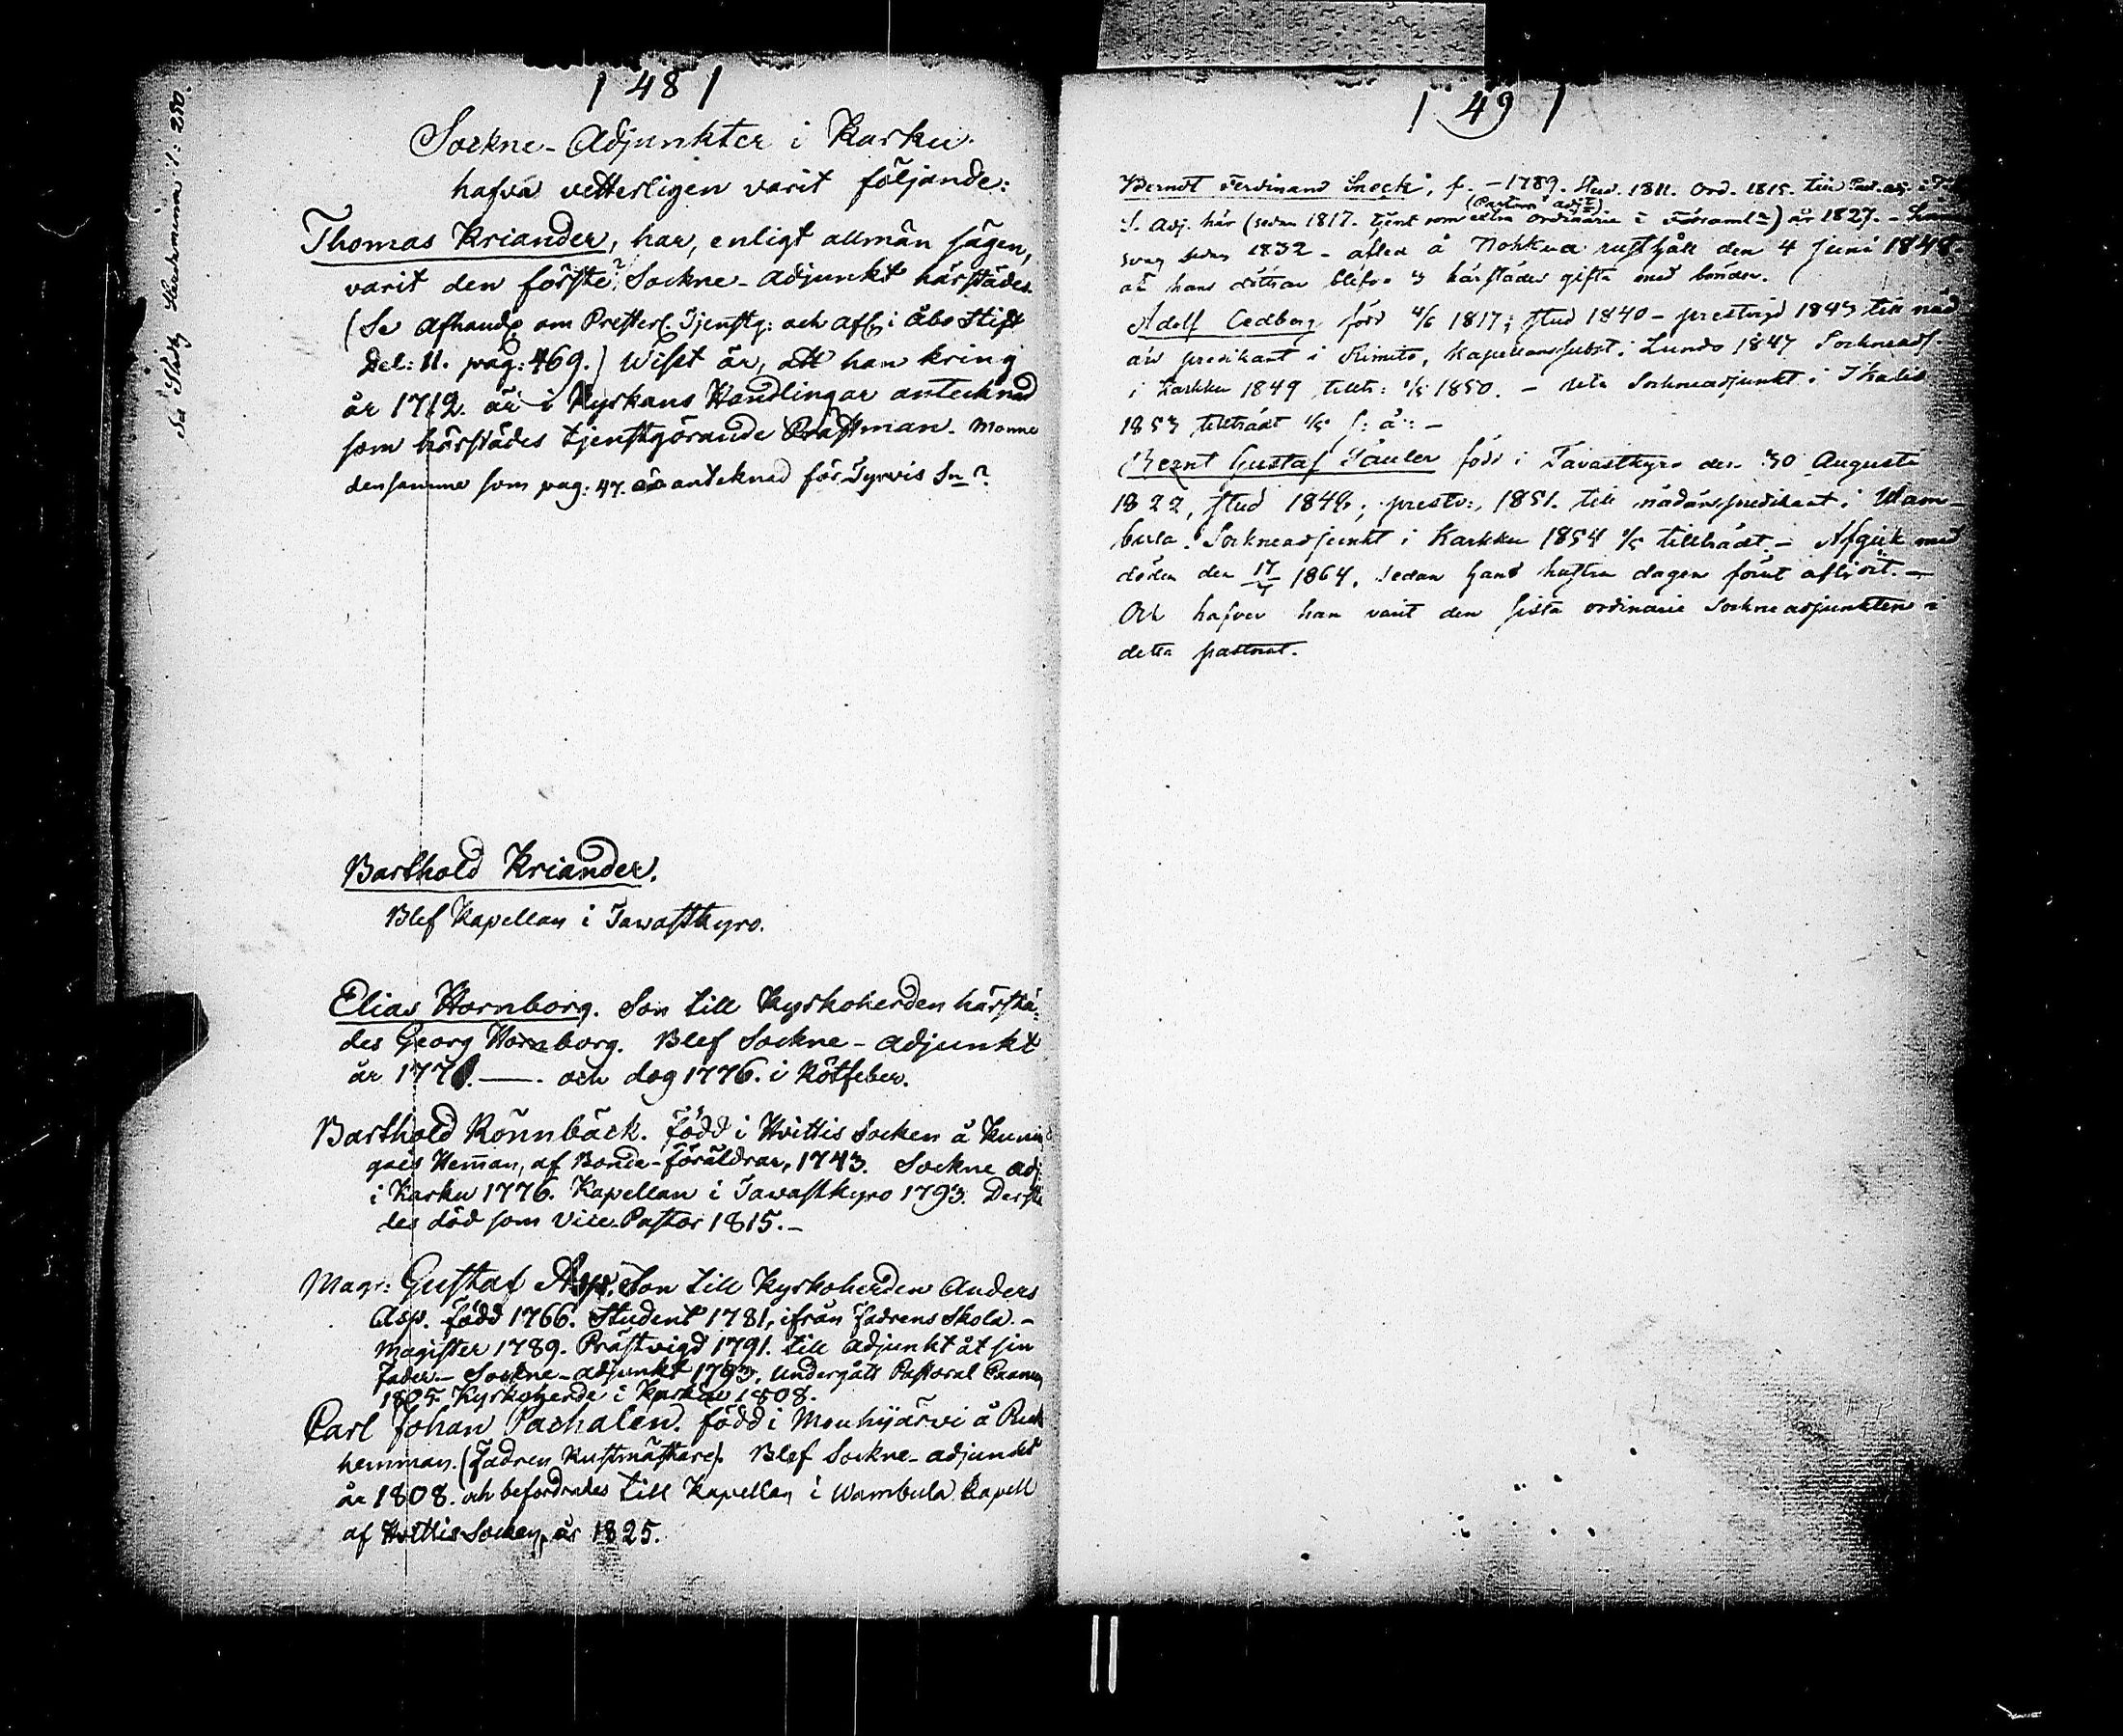 | 48 |
Sockne-Adjunkter i Karku
hafva vetterligen varit följande:
Thomas Kriander, har, enligt allmän sägen,
varit den förste? Sockne-adjunkt härstädes.
(Se Afhandl. om Presterl. Tjenstg: och Afl: i Åbo Stift
Del: II. pag: 469.) Wisst är, att han kring
år 1712. är i Kyrkans Handlingar antecknad
som härstädes tjenstgörande Prästman. Monne
densamme som pag: 47. är anteknad för Tyrvis Sn?
Barthold Kriander.
Blef Kapellan i Tawastkyro.
Elias Hornborg. Son till Kyrkoherden härstä-
des Georg Hornborg. Blef Sockne-adjunkt
år 177 —. och dog 1776. i Rötfeber.
Barthold Rönnbäck. född i Hvittis Socken å Kunin
gais Hemman, af Bonde-föräldrar, 1743. Sockne adj:
i Karku 1776. Kapellan i Tavastkyro 1793. Derstä
des död som Vice Pastor 1815.-
Magr: Gustaf Asp. Son till Kyrkoherden Anders
Asp. född 1766. Student 1781, ifrån fadrens Skola.-
Magister 1789. Prästvigd 1791. till adjunkt åt sin
fader.- Sockne-adjunkt 1793. undergått Pastoral Examen
1805. Kyrkoherde i Karku 1808.
Carl Johan Pachalen. född i Mouhijärvi å
hemman. (fadren Rustmästare). Blef Sockne-adjunkt
år 1808. och befordrades till Kapellan i Wambula Kapell
af Hvittis Socken, år 1825.
| 49 |
Berndt Ferdinand Snock, f. - 1789. Stud. 1811. Ord. 1815. till
(Pastors adjt)
S. Adj. här (sedan 1817. tjent som extra ordinarie i Församln) år 1827. -
svag sedan 1832 - afled å Nohkua rusthåll den 4 Juni 1848
at hans döttrar blefvo 3 härstädes gifta med bönder.
Adolf Cedberg född 4/6 1817; stud 1840 - prestvigd 1843 till nåd
års predikant i Kimito, Kapellanssubst: i Lundo 1847 Sockneadj.
i Karkku 1849 tilltr: 1/5 1850. - Sockneadjunkt i Ikalis
1853 tillträdt 1/5 s: å: -
Bernt Gustaf Tauler född i Tavastkyro den 30 Augusti
1822, stud 1849; prestv:, 1851. till nådårspredikant i Wam-
bula. Sockneadjunkt i Karkku 1854 1/5 tillträdt. - Afgick med
döden den 1864, sedan hans hustru dagen förut aflidit. -
Och hafver han varit den sista ordinarie Sockneadjunkten i
detta pastorat.